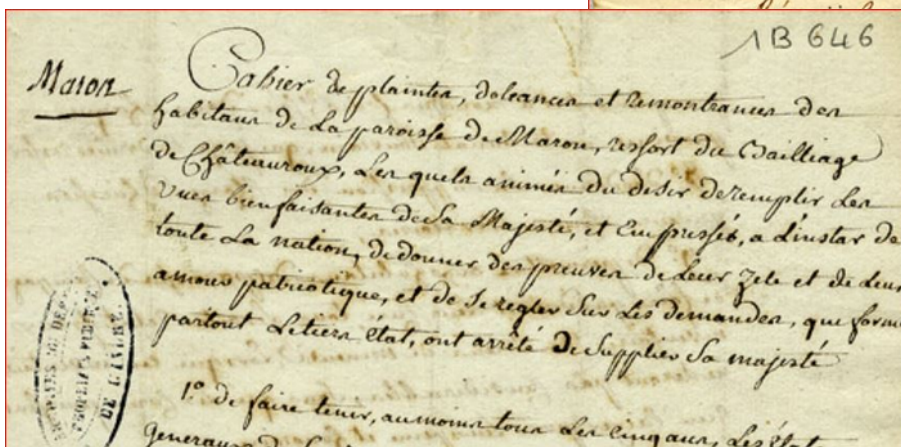 1B 646
Maron
Cahier de plaintes, doleances et remontrances des
habitans de La paroisse de Maron, ressort du Bailliage
de Châteauroux, Les quels animés du desir de remplir Les
vues bienfaisantes de Sa Majesté, et Empressés, a L'instar de
toute La nation, de donner des preuves de Leur Zele et de Leur
amour patriotique, et de se regler Sur Les demandes, que forme
partout Le tiers état, ont arrêté de Supplier Sa majesté
1.° de faire tenir, au moins tous Les cinq ans, Les Etats
generaux
DE L'INDRE